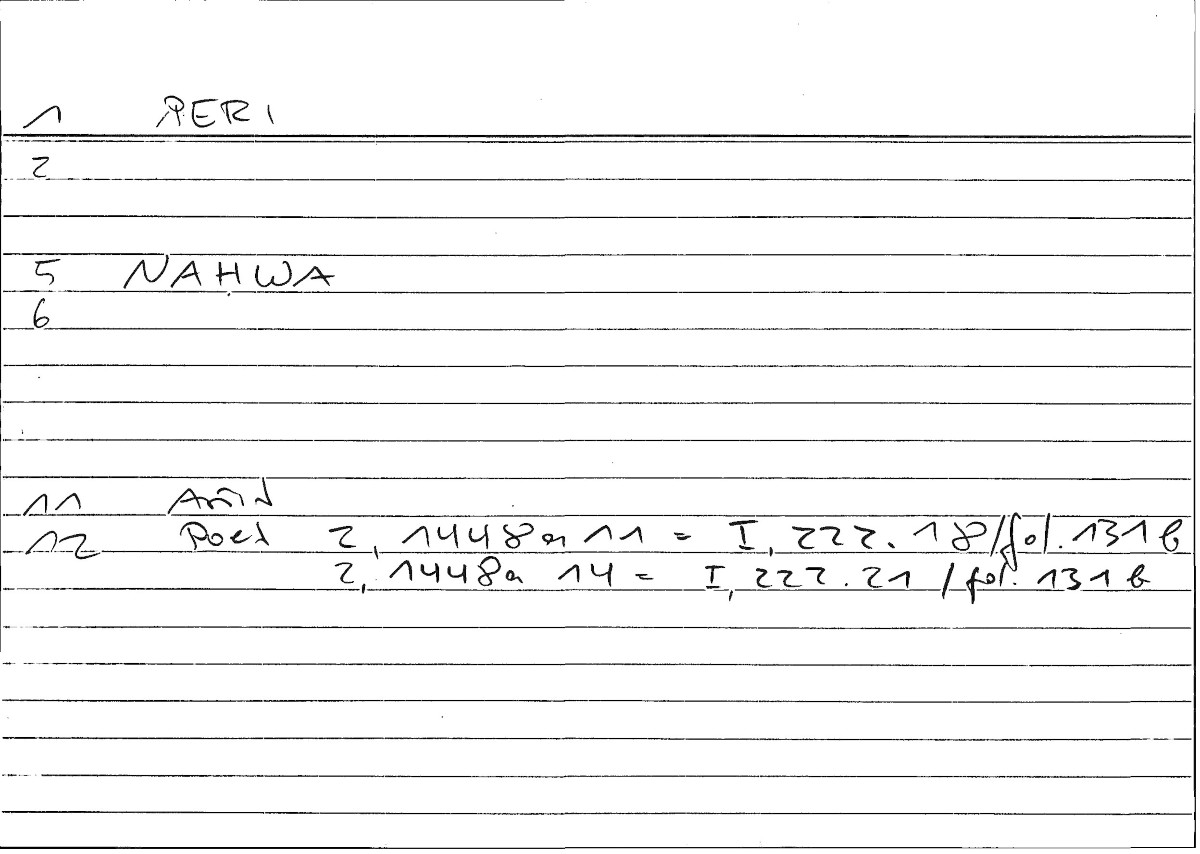 1 PERI
2
5 NAḤWA
6
11 Arist
12 Poet 2, 1448a 11 = I, 222.18/fol.131b
2, 1448a 14 = I, 222.21 /fol.131b